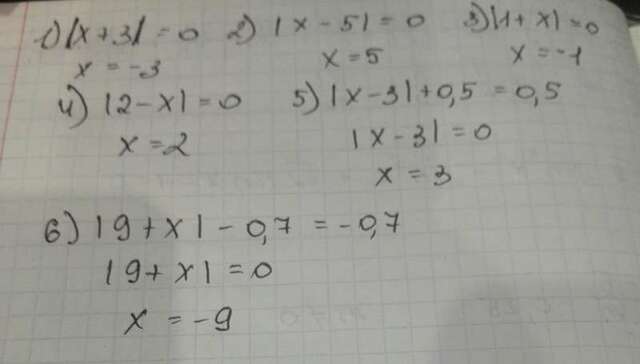 1) |x + 3| = 0 2) |x - 5| = 0 3) |1 + x| = 0
x = -3 x = 5 x = -1
4) |2 - x| = 0 5) |x - 3| + 0,5 = 0,5
x = 2 |x - 3| = 0
x = 3
6) |9 + x| - 0,7 = -0,7
|9 + x| = 0
x = -9